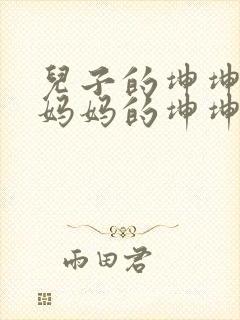 兒子的坤坤
妈妈的坤坤
雨田君